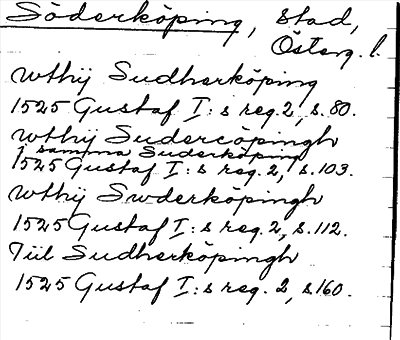 Söderköping, stad,
Österg. l.
wthij Sudherköping
1525 Gustaf I:s reg. 2, s. 80.
wthij Sudercöpingh
i samma Suderköping
1525 Gustaf I:s reg. 2, s. 103.
wthij Swderköpingh
1525 Gustaf I:s reg. 2, s. 112.
Tiil Sudherköpingh
1525 Gustaf I:s reg. 2, s 160.